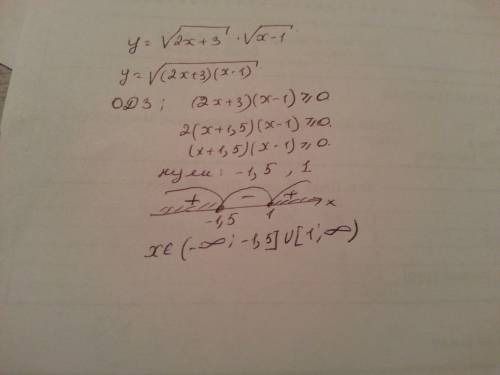 y = √(2x+3) · √(x-1)
y = √((2x+3)(x-1))
ОДЗ: (2x+3)(x-1) ≥ 0.
2(x+1,5)(x-1) ≥ 0.
(x+1,5)(x-1) ≥ 0.
нули: -1,5 , 1
+ - +
-1,5 1 x
x ∈ (-∞; -1,5] ∪ [1; ∞)